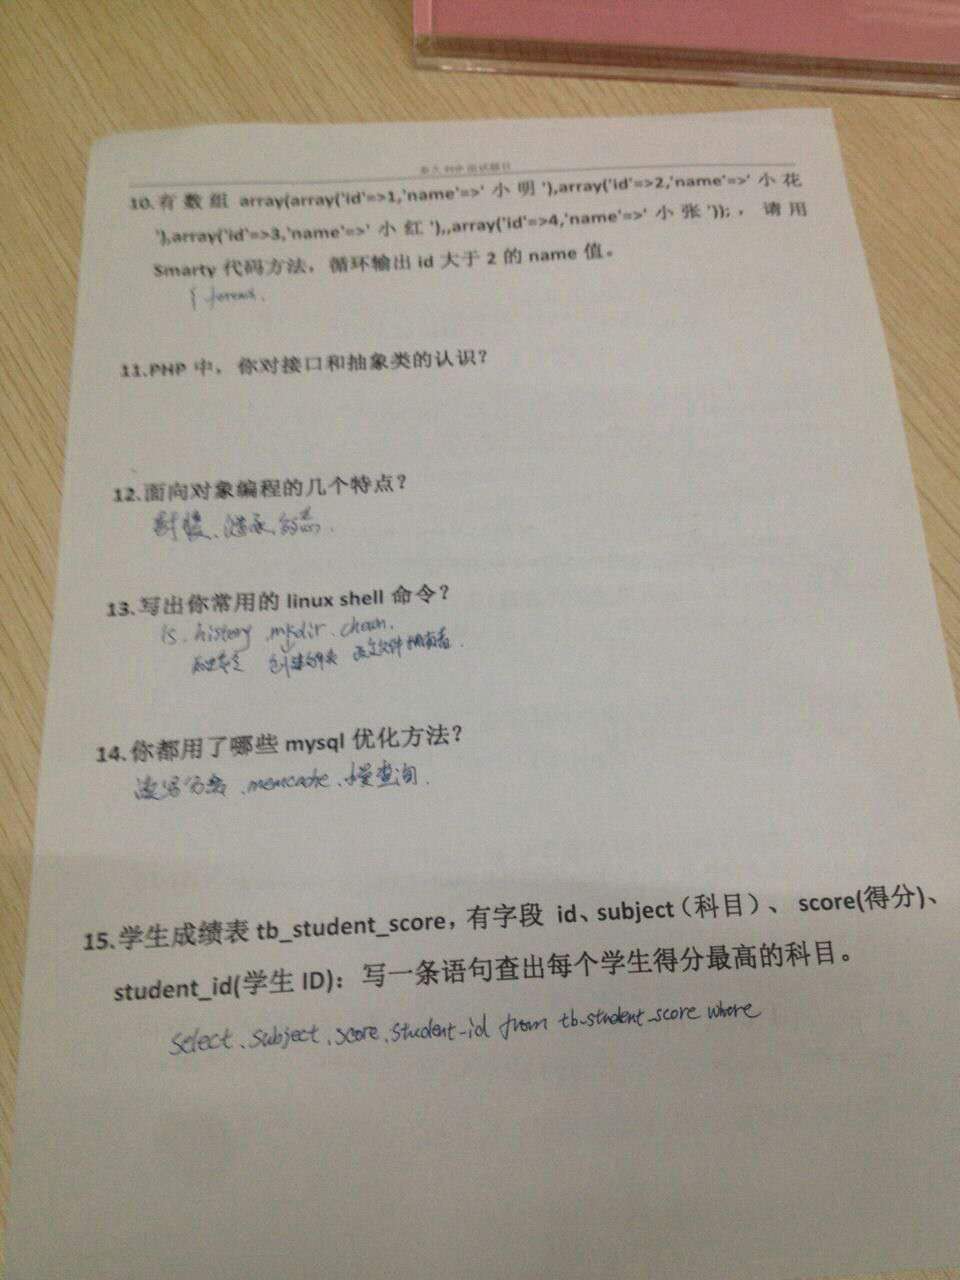 面试题目
10.有数组 array(array('id'=>1,'name'=>' 小明 '),array('id'=>2,'name'=>' 小花
'),array('id'=>3,'name'=>' 小红 '),,array('id'=>4,'name'=>' 小张 '));，请用
Smarty 代码方法，循环输出 id 大于 2 的 name 值。
11.PHP 中，你对接口和抽象类的认识？
12.面向对象编程的几个特点？
封装、继承、多态.
13.写出你常用的 linux shell 命令？
ls、history、mkdir、chown.
历史命令 创建文件夹 改变文件拥有者.
14.你都用了哪些 mysql 优化方法？
读写分离、memcache、慢查询.
15.学生成绩表 tb_student_score，有字段 id、subject（科目）、 score(得分)、
student_id(学生 ID)：写一条语句查出每个学生得分最高的科目。
select、subject、score、student_id from tb_student_score where